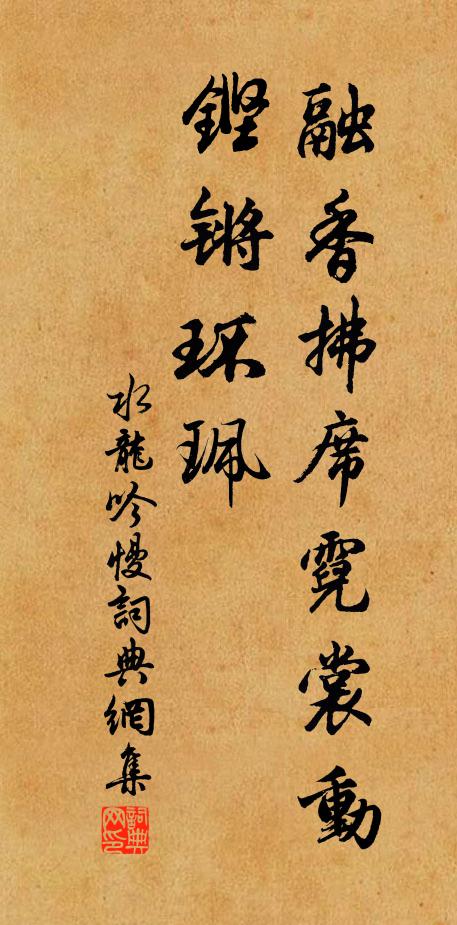 融香拂席霓裳動
鏗鏘环珮
水龍吟慢詞典網集
詞典网印